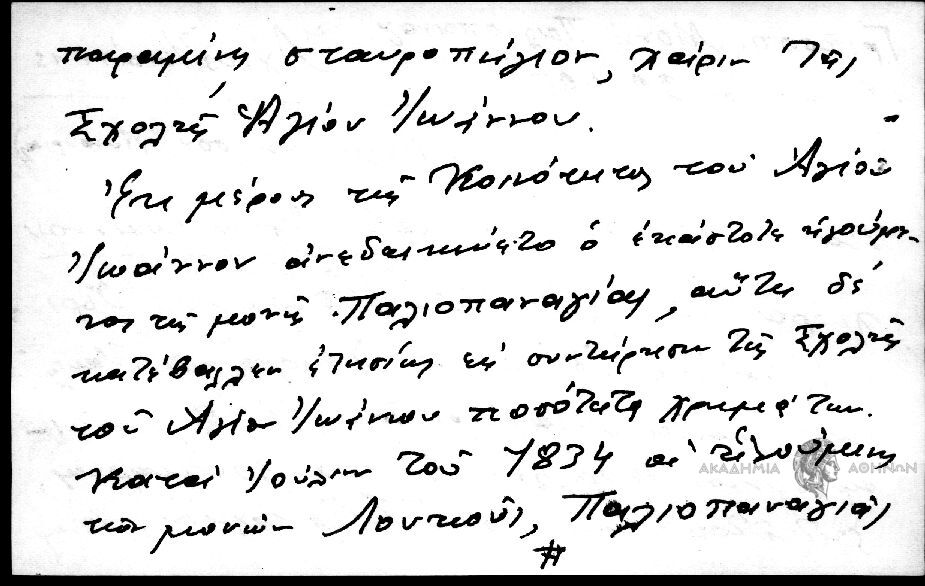 παραμείνῃ σταυροπήγιον, χάριν τῆς
Σχολῆς Ἁγίου Ἰωάννου.
Ἐκ μέρους τῆς Κοινότητος τοῦ Ἁγίου
Ἰωάννου ἀνεδεικνύετο ὁ ἑκάστοτε ἡγούμε-
νος τῆς μονῆς Παλιοπαναγιᾶς, αὕτη δὲ
κατέβαλλεν ἐτησίως εἰς συντήρησιν τῆς Σχολῆς
τοῦ Ἁγίου Ἰωάννου ποσότητα χρημάτων.
Κατὰ Ἰούλιον τοῦ 1834 οἱ ἡγούμενοι
τῶν μονῶν Λουκοῦς, Παλιοπαναγιᾶς
#
ΑΚΑΔΗΜΙΑ ΑΘΗΝΩΝ